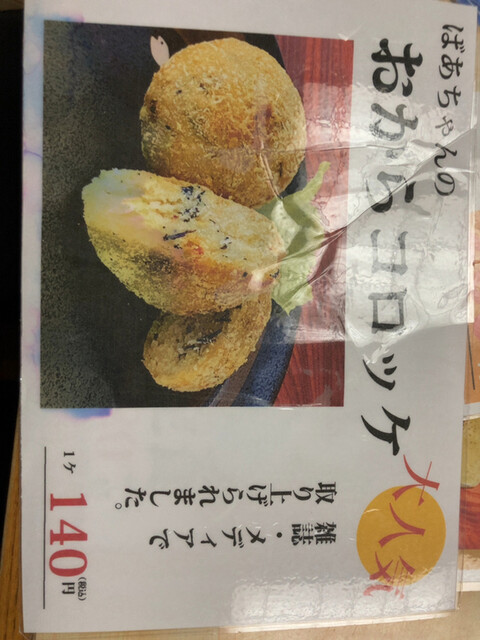 ばあちゃんの
おからコロッケ
大人気
雑誌・メディアで
取り上げられました。
1ケ 140円(税込)